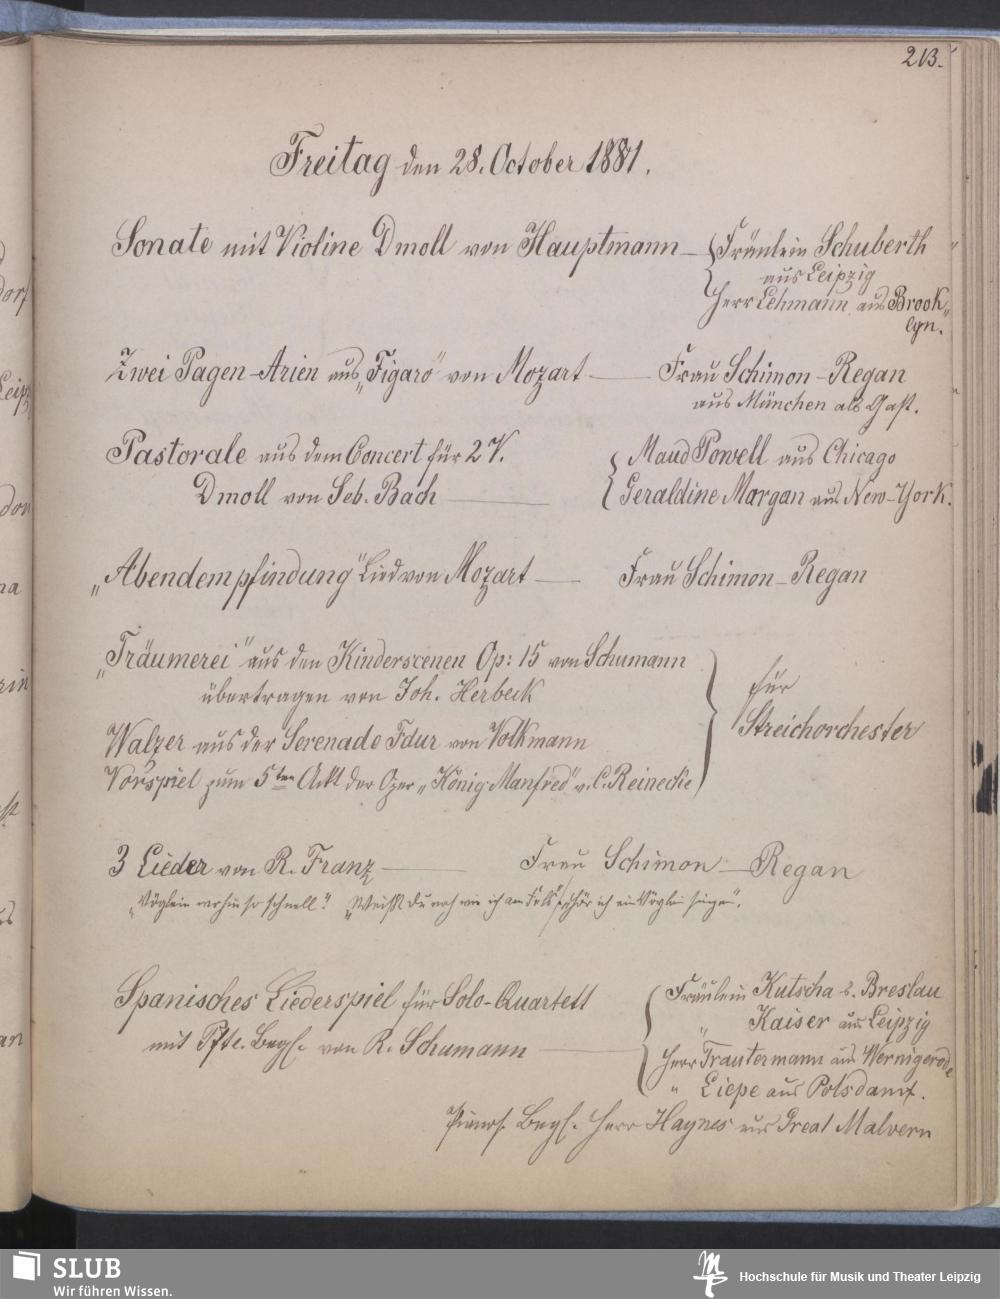 213.
Freitag den 28. October 1881.
Sonate mit Violine Dmoll von Hauptmann — Fräulein Schuberth
aus Leipzig
Herr Lehmann aus Brook„
lyn.
Zwei Pagen-Arien aus „Figaro" von Mozart — Frau Schimon-Regan
aus München als Gast.
Pastorale aus dem Concert für 2 V. Maud Powell aus Chicago
Dmoll von Seb. Bach — Geraldine Morgan aus New-York.
„Abendempfindung" Lied von Mozart — Frau Schimon-Regan
„Träumerei" aus den Kinderscenen Op: 15 von Schumann
übertragen von Joh. Herbeck
für
Streichorchester
Walzer aus der Serenade Fdur von Volkmann
Vorspiel zum 5ten Ackt der Oper „König Manfred" v. C. Reinecke
3 Lieder von R. Franz — Frau Schimon-Regan
„Vöglein wohin so schnell?" „Weißt du noch wie ich am Fels" „hör ich ein Vöglein singen".
Spanisches Liederspiel für Solo-Quartett Fräulein Kutscha a. Breslau
" Kaiser aus Leipzig
mit Pfte. Begl. von R. Schumann — Herr Trautermann aus Wernigerode
" Liepe aus Potsdam.
Pianof. Begl. Herr Haynes aus Great Malvern
SLUB
Wir führen Wissen.
Hochschule für Musik und Theater Leipzig